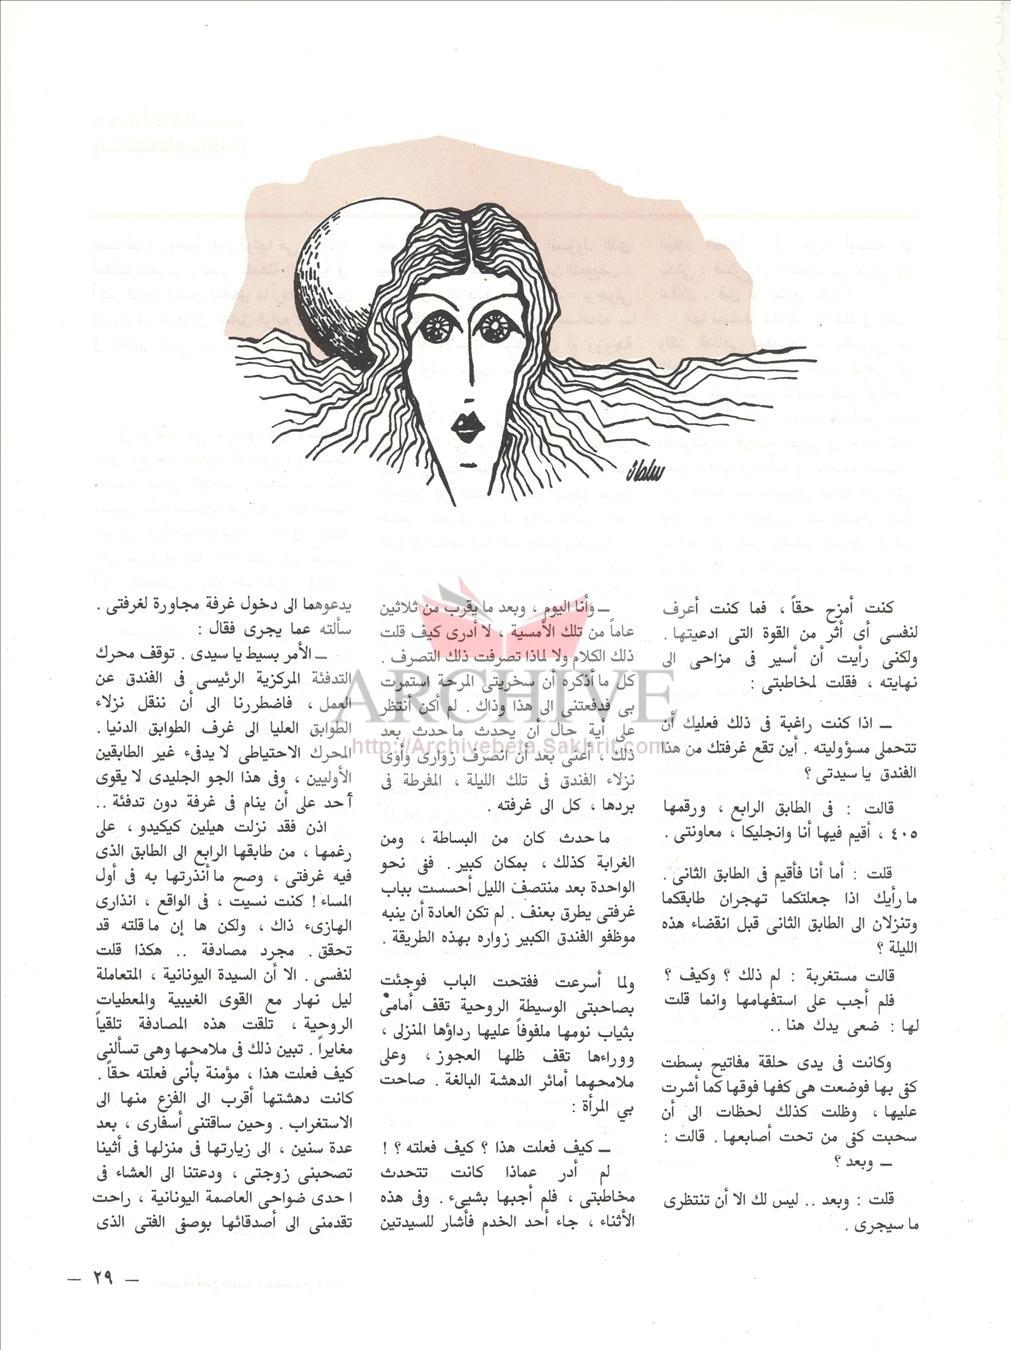 سلمان
كنت أمزح حقاً ، فما كنت أعرف
لنفسى أى أثر من القوة التى ادعيتها .
ولكنى رأيت أن أسير فى مزاحى الى
نهايته ، فقلت لمخاطبتى :
ــ اذا كنت راغبة فى ذلك فعليك أن
تتحملى مسؤوليته . أين تقع غرفتك من هذا
الفندق يا سيدتى ؟
قالت : فى الطابق الرابع ، ورقمها
٤٠٥ ، أقيم فيها أنا وانجليكا ، معاونتى .
قلت : أما أنا فأقيم فى الطابق الثانى .
ما رأيك اذا جعلتكما تهجران طابقكما
وتنزلان الى الطابق الثانى قبل انقضاء هذه
الليلة ؟
قالت مستغربة : لم ذلك ؟ وكيف ؟
فلم أجب على استفهامها وانما قلت
لها : ضعى يدك هنا ..
وكانت فى يدى حلقة مفاتيح بسطت
كفى بها فوضعت هى كفها فوقها كما أشرت
عليها ، وظلت كذلك لحظات الى أن
سحبت كفى من تحت أصابعها . قالت :
ــ وبعد ؟
قلت : وبعد .. ليس لك الا أن تنتظرى
ما سيجرى .
ــ وأنا اليوم ، وبعد ما يقرب من ثلاثين
عاماً من تلك الأمسية ، لا أدرى كيف قلت
ذلك الكلام ولا لماذا تصرفت ذلك التصرف .
كل ما أذكره أن سخريتى المرحة استمرت
بى فدفعتنى الى هذا وذاك . لم أكن أنتظر
على أية حال أن يحدث ما حدث بعد
ذلك ، أعنى بعد أن انصرف زوارى وأوى
نزلاء الفندق فى تلك الليلة ، المفرطة فى
بردها ، كل الى غرفته .
ما حدث كان من البساطة ، ومن
الغرابة كذلك ، بمكان كبير . ففى نحو
الواحدة بعد منتصف الليل أحسست بباب
غرفتى يطرق بعنف . لم تكن العادة أن ينبه
موظفو الفندق الكبير زواره بهذه الطريقة .
ولما أسرعت ففتحت الباب فوجئت
بصاحبتى الوسيطة الروحية تقف أمامى
بثياب نومها ملفوفاً عليها رداؤها المنزلى ،
ووراءها تقف ظلها العجوز ، وعلى
ملامحهما أمائر الدهشة البالغة . صاحت
بي المرأة :
ــ كيف فعلت هذا ؟ كيف فعلته ؟ !
لم أدر عماذا كانت تتحدث
مخاطبتى ، فلم أجبها بشيىء . وفى هذه
الأثناء ، جاء أحد الخدم فأشار للسيدتين
يدعوهما الى دخول غرفة مجاورة لغرفتى .
سألته عما يجرى فقال :
ــ الأمر بسيط يا سيدى . توقف محرك
التدفئة المركزية الرئيسى فى الفندق عن
العمل ، فاضطررنا الى أن ننقل نزلاء
الطوابق العليا الى غرف الطوابق الدنيا .
المحرك الاحتياطى لا يدفىء غير الطابقين
الأوليين ، وفى هذا الجو الجليدى لا يقوى
أحد على أن ينام فى غرفة دون تدفئة ..
اذن فقد نزلت هيلين كيكيدو ، على
رغمها ، من طابقها الرابع الى الطابق الذى
فيه غرفتى ، وصح ما أنذرتها به فى أول
المساء ! كنت نسيت ، فى الواقع ، انذارى
الهازىء ذاك ، ولكن ها إن ما قلته قد
تحقق . مجرد مصادفة .. هكذا قلت
لنفسى . الا أن السيدة اليونانية ، المتعاملة
ليل نهار مع القوى الغيبية والمعطيات
الروحية ، تلقت هذه المصادفة تلقياً
مغايراً . تبين ذلك فى ملامحها وهى تسألنى
كيف فعلت هذا ، مؤمنة بأنى فعلته حقاً .
كانت دهشتها أقرب الى الفزع منها الى
الاستغراب . وحين ساقتنى أسفارى ، بعد
عدة سنين ، الى زيارتها فى منزلها فى أثينا
تصحبنى زوجتى ، ودعتنا الى العشاء فى
احدى ضواحى العاصمة اليونانية ، راحت
تقدمنى الى أصدقائها بوصفى الفتى الذى
ARCHIVE
http://Archivebeta.Sakhrit.com
ــ ٢٩ ــ